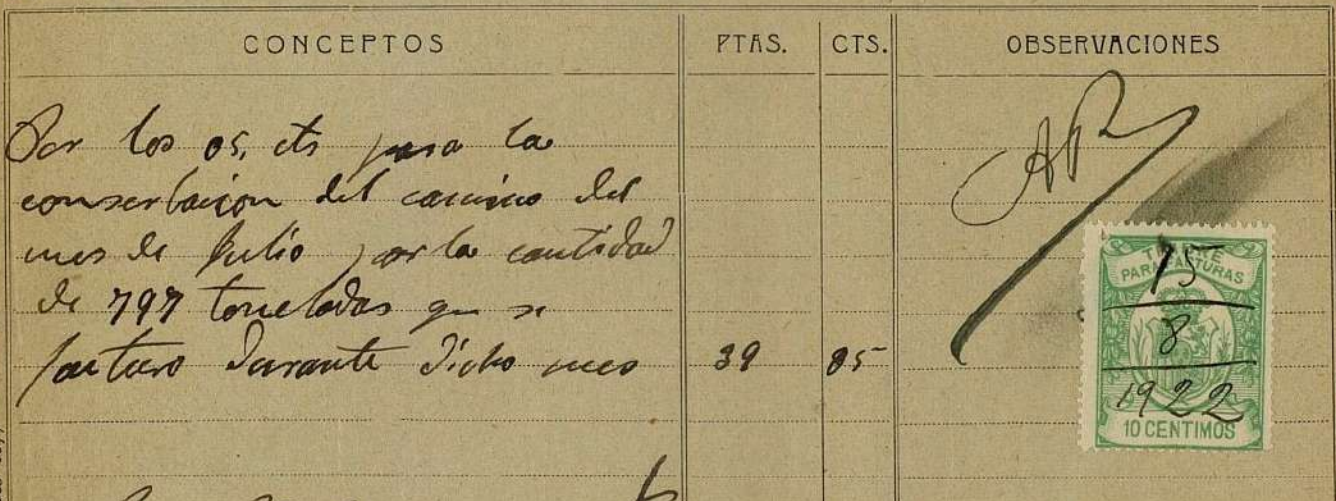 CONCEPTOS PTAS. CTS. OBSERVACIONES
Por los 05, cts para la
conserbacion del camino del
mes de Julio por la cantidad
de 797 toneladas que se
facturo durante dicho mes 39 85
AR
TIMBRE
PARA FACTURAS
15
8
1922
10 CENTIMOS